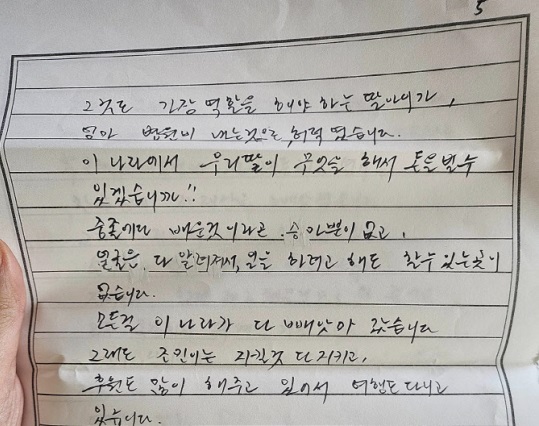 5
그것도 가장 역활을 해야 하는 딸아이가,
엄마 병원비 내는것으로, 허력 됬습니다.
이 나라에서 우리딸이 무엇을 해서 돈을 벌수
있겠습니까!!
중졸에다 배운것이라곤 승마뿐이 없고,
얼굴은 다 알려져서, 일을 하려고 해도 할수 있는곳이
없습니다.
모든걸 이 나라가 다 빼앗아 갔습니다
그래도 조민이는 지킬것 다 지키고,
후원도 많이 해주고 있어서 여행도 다니고
있습니다.